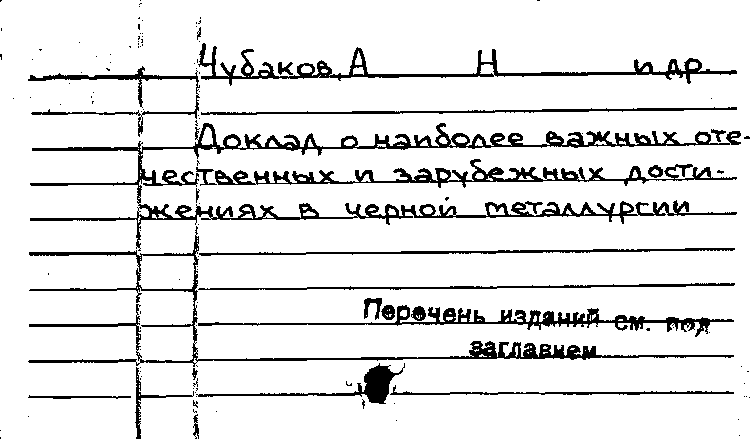 Чубаков, А Н и др.
Доклад о наиболее важных оте-
чественных и зарубежных дости-
жениях в черной металлургии
Перечень изданий см. под
заглавием